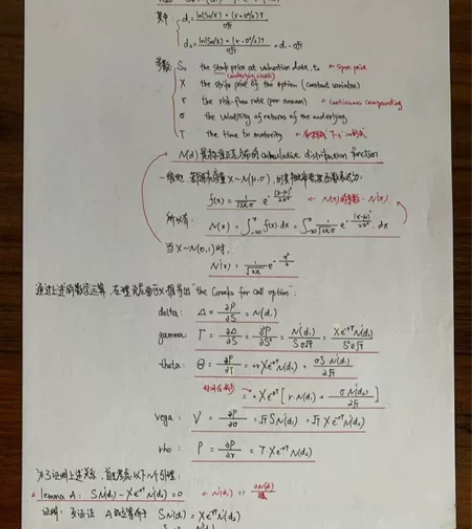 其中: d₁ = ln(S₀/X) + (r + σ²/2)T / σ√T
d₂ = ln(S₀/X) + (r - σ²/2)T / σ√T = d₁ - σ√T
参数: S₀ the stock price at valuation date, t₀ ← spot price
(underlying asset)
X the strike price of the option (constant variable)
r the risk-free rate (per annum) ← continuous compounding
σ the volatility of returns of the underlying
T the time to maturity
N(d) 是标准正态分布的 cumulative distribution function
X~N(μ,σ),
f(x) = 1/√2πσ e^-(x-μ)²/2σ² ← N(x)的导数 = N'(x)
所以有: N(x) = ∫_-∞^x f(x)·dx = ∫_-∞^x 1/√2πσ e^-(x-μ)²/2σ² · dx
当 X~N(0,1)时,
N'(x) = 1/√2π e^-x²/2
通过上述的数学运算, "the Greeks for call option":
delta: Δ = ∂P/∂S = N(d₁)
gamma Γ = ∂Δ/∂S = ∂²P/∂S² = N'(d₁)/Sσ√T = Xe^-rT N'(d₂)/S²σ√T
theta: Θ = ∂P/∂T = +rXe^-rT N(d₂) + σS N'(d₁)/2√T
= +Xe^-rT [r·N(d₂) + σN'(d₂)/2√T]
vega: V = ∂P/∂σ = √T SN'(d₁) = √T Xe^-rT N'(d₂)
rho: P = ∂P/∂r = TXe^-rT N(d₂)
为了证明上述关系, 首先考虑以下几个引理:
lemma A: SN'(d₁) - Xe^-rT N'(d₂) = 0 ← N'(d₁) =>
证明: A SN'(d₁) = Xe^-rT N'(d₂)